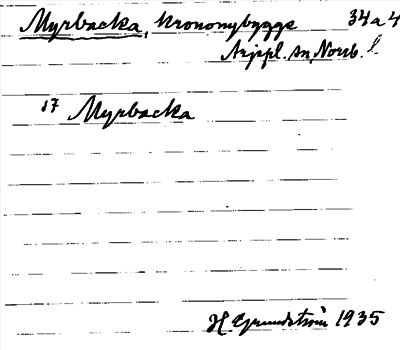 Myrbacka, Kronomybygge 34a4
Arjepl. sn, Norrb. l
17 Myrbacka
H. Grundström 1935